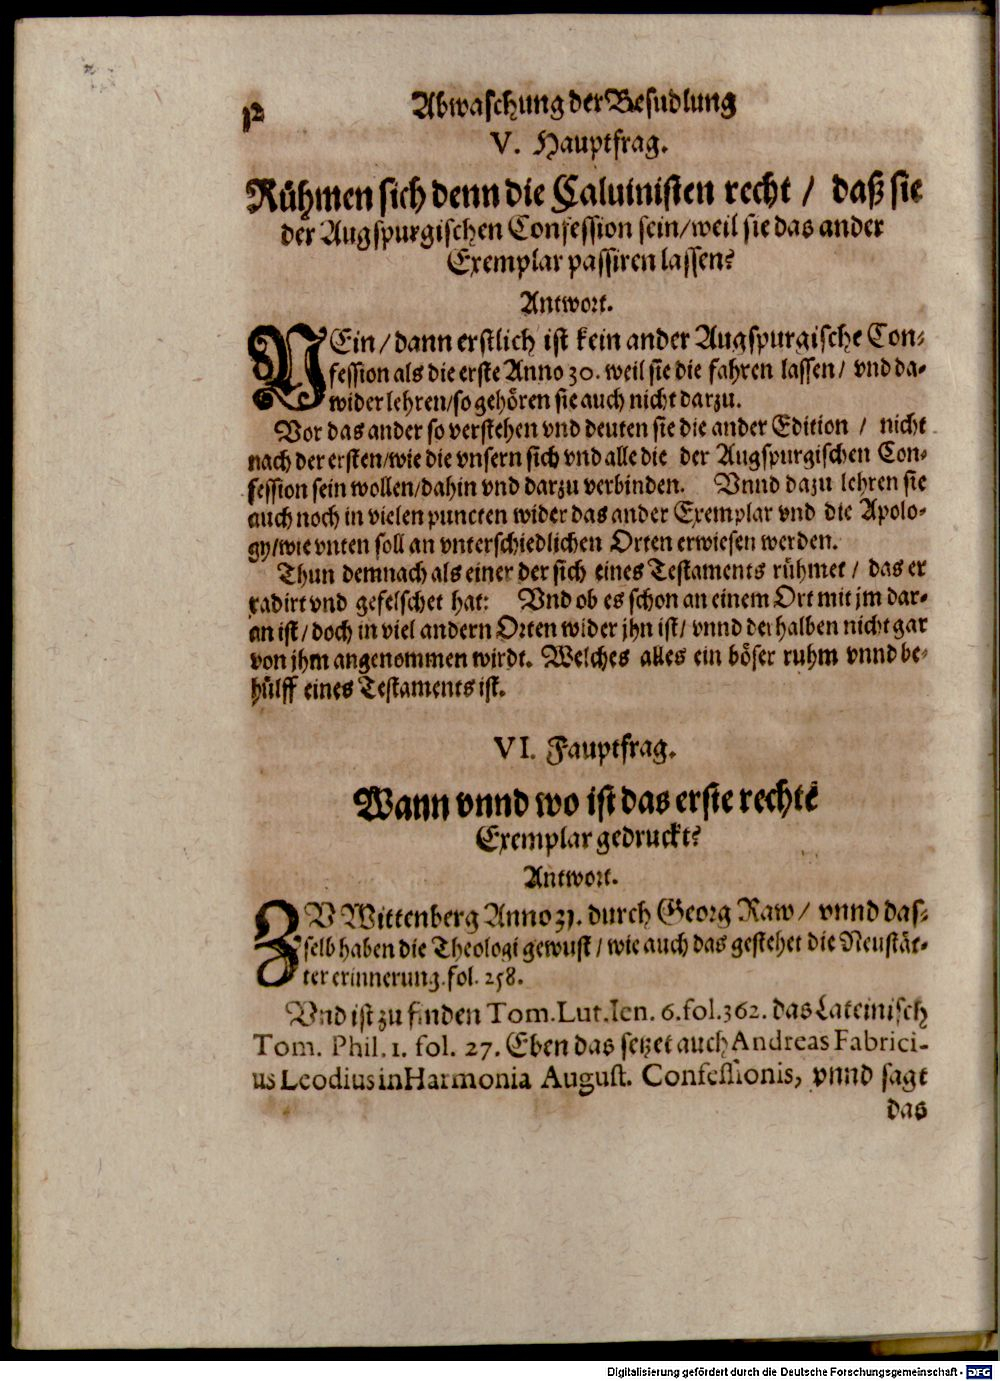 12 Abwaschung der Besudlung
V. Hauptfrag.
Rühmen sich denn die Caluinisten recht / daß sie
der Augspurgischen Confession sein/weil sie das ander
Exemplar passiren lassen?
Antwort.
NEin / dann erstlich ist kein ander Augspurgische Con-
fession als die erste Anno 30. weil sie die fahren lassen / vnd da-
wider lehren/so gehören sie auch nicht darzu.
Vor das ander so verstehen vnd deuten sie die ander Edition / nicht
nach der ersten/wie die vnsern sich vnd alle die der Augspurgischen Con-
fession sein wollen/dahin vnd darzu verbinden. Vnnd dazu lehren sie
auch noch in vielen puncten wider das ander Exemplar vnd die Apolo-
gy/wie vnten soll an vnterschiedlichen Orten erwiesen werden.
Thun demnach als einer der sich eines Testaments rühmet / das er
radirt vnd gefelschet hat: Vnd ob es schon an einem Ort mit jm dar-
an ist / doch in viel andern Orten wider jhn ist / vnnd derhalben nicht gar
von jhm angenommen wirdt. Welches alles ein böser ruhm vnnd be-
hülff eines Testaments ist.
VI. Fauptfrag.
Wann vnnd wo ist das erste rechte
Exemplar gedruckt?
Antwort.
ZV Wittenberg Anno 31. durch Georg Raw / vnnd das-
selb haben die Theologi gewust / wie auch das gestehet die Neustät-
ter erinnerung. fol. 258.
Vnd ist zu finden Tom. Lut. Ien. 6. fol. 362. das Lateinisch
Tom. Phil. 1. fol. 27. Eben das setzet auch Andreas Fabrici-
us Leodius in Harmonia August. Confessionis, vnnd sagt
das
Digitalisierung gefördert durch die Deutsche Forschungsgemeinschaft - DFG